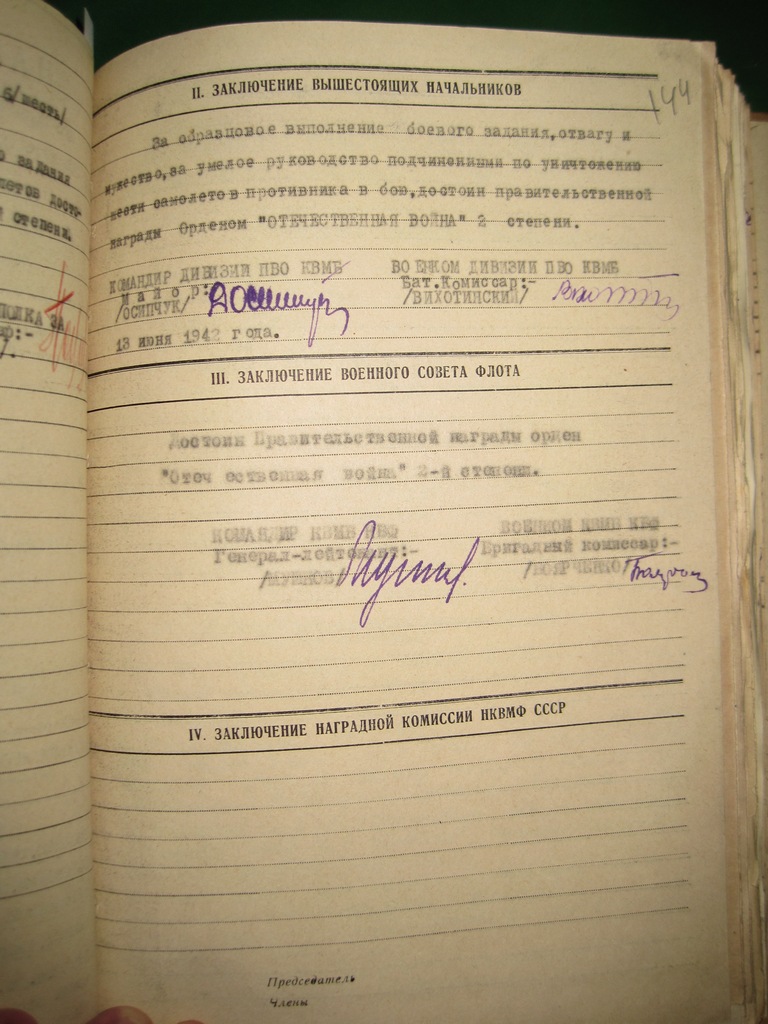 6/шесть/
задания
летов досто-
степени.
144
II. ЗАКЛЮЧЕНИЕ ВЫШЕСТОЯЩИХ НАЧАЛЬНИКОВ
За образцовое выполнение боевого задания, отвагу и
мужество, за умелое руководство подчиненными по уничтожению
шести самолетов противника в бою, достоин правительственной
награды Орденом "ОТЕЧЕСТВЕННАЯ ВОЙНА" 2 степени.
КОМАНДИР ДИВИЗИИ ПВО КВМБ ВОЕНКОМ ДИВИЗИИ ПВО КВМБ
Майор: Бат.Комиссар:-
/ОСИПЧУК/ /ВИХОТИНСКИЙ/
13 июня 1942 года.
III. ЗАКЛЮЧЕНИЕ ВОЕННОГО СОВЕТА ФЛОТА
Достоин Правительственной награды орден
"Отеч ественная война" 2-й степени.
КОМАНДИР КВМБ КБФ ВОЕНКОМ КВМБ КБФ
Генерал-лейтенант:- Бригадный комиссар:-
IV. ЗАКЛЮЧЕНИЕ НАГРАДНОЙ КОМИССИИ НКВМФ СССР
Председатель
Члены